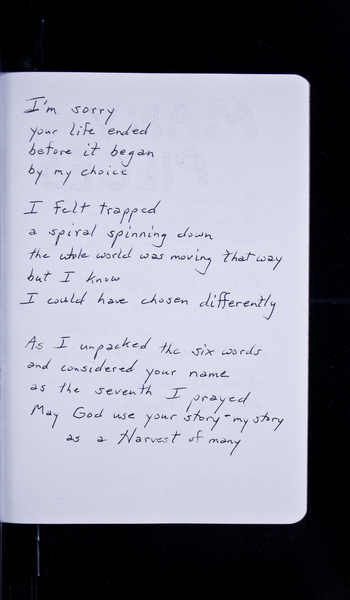 I'm sorry
your life ended
before it began
by my choice
I felt trapped
a spiral spinning down
the whole world was moving that way
but I know
I could have chosen differently
As I unpacked the six words
and considered your name
as the seventh I prayed
May God use your story - my story
as a Harvest of many